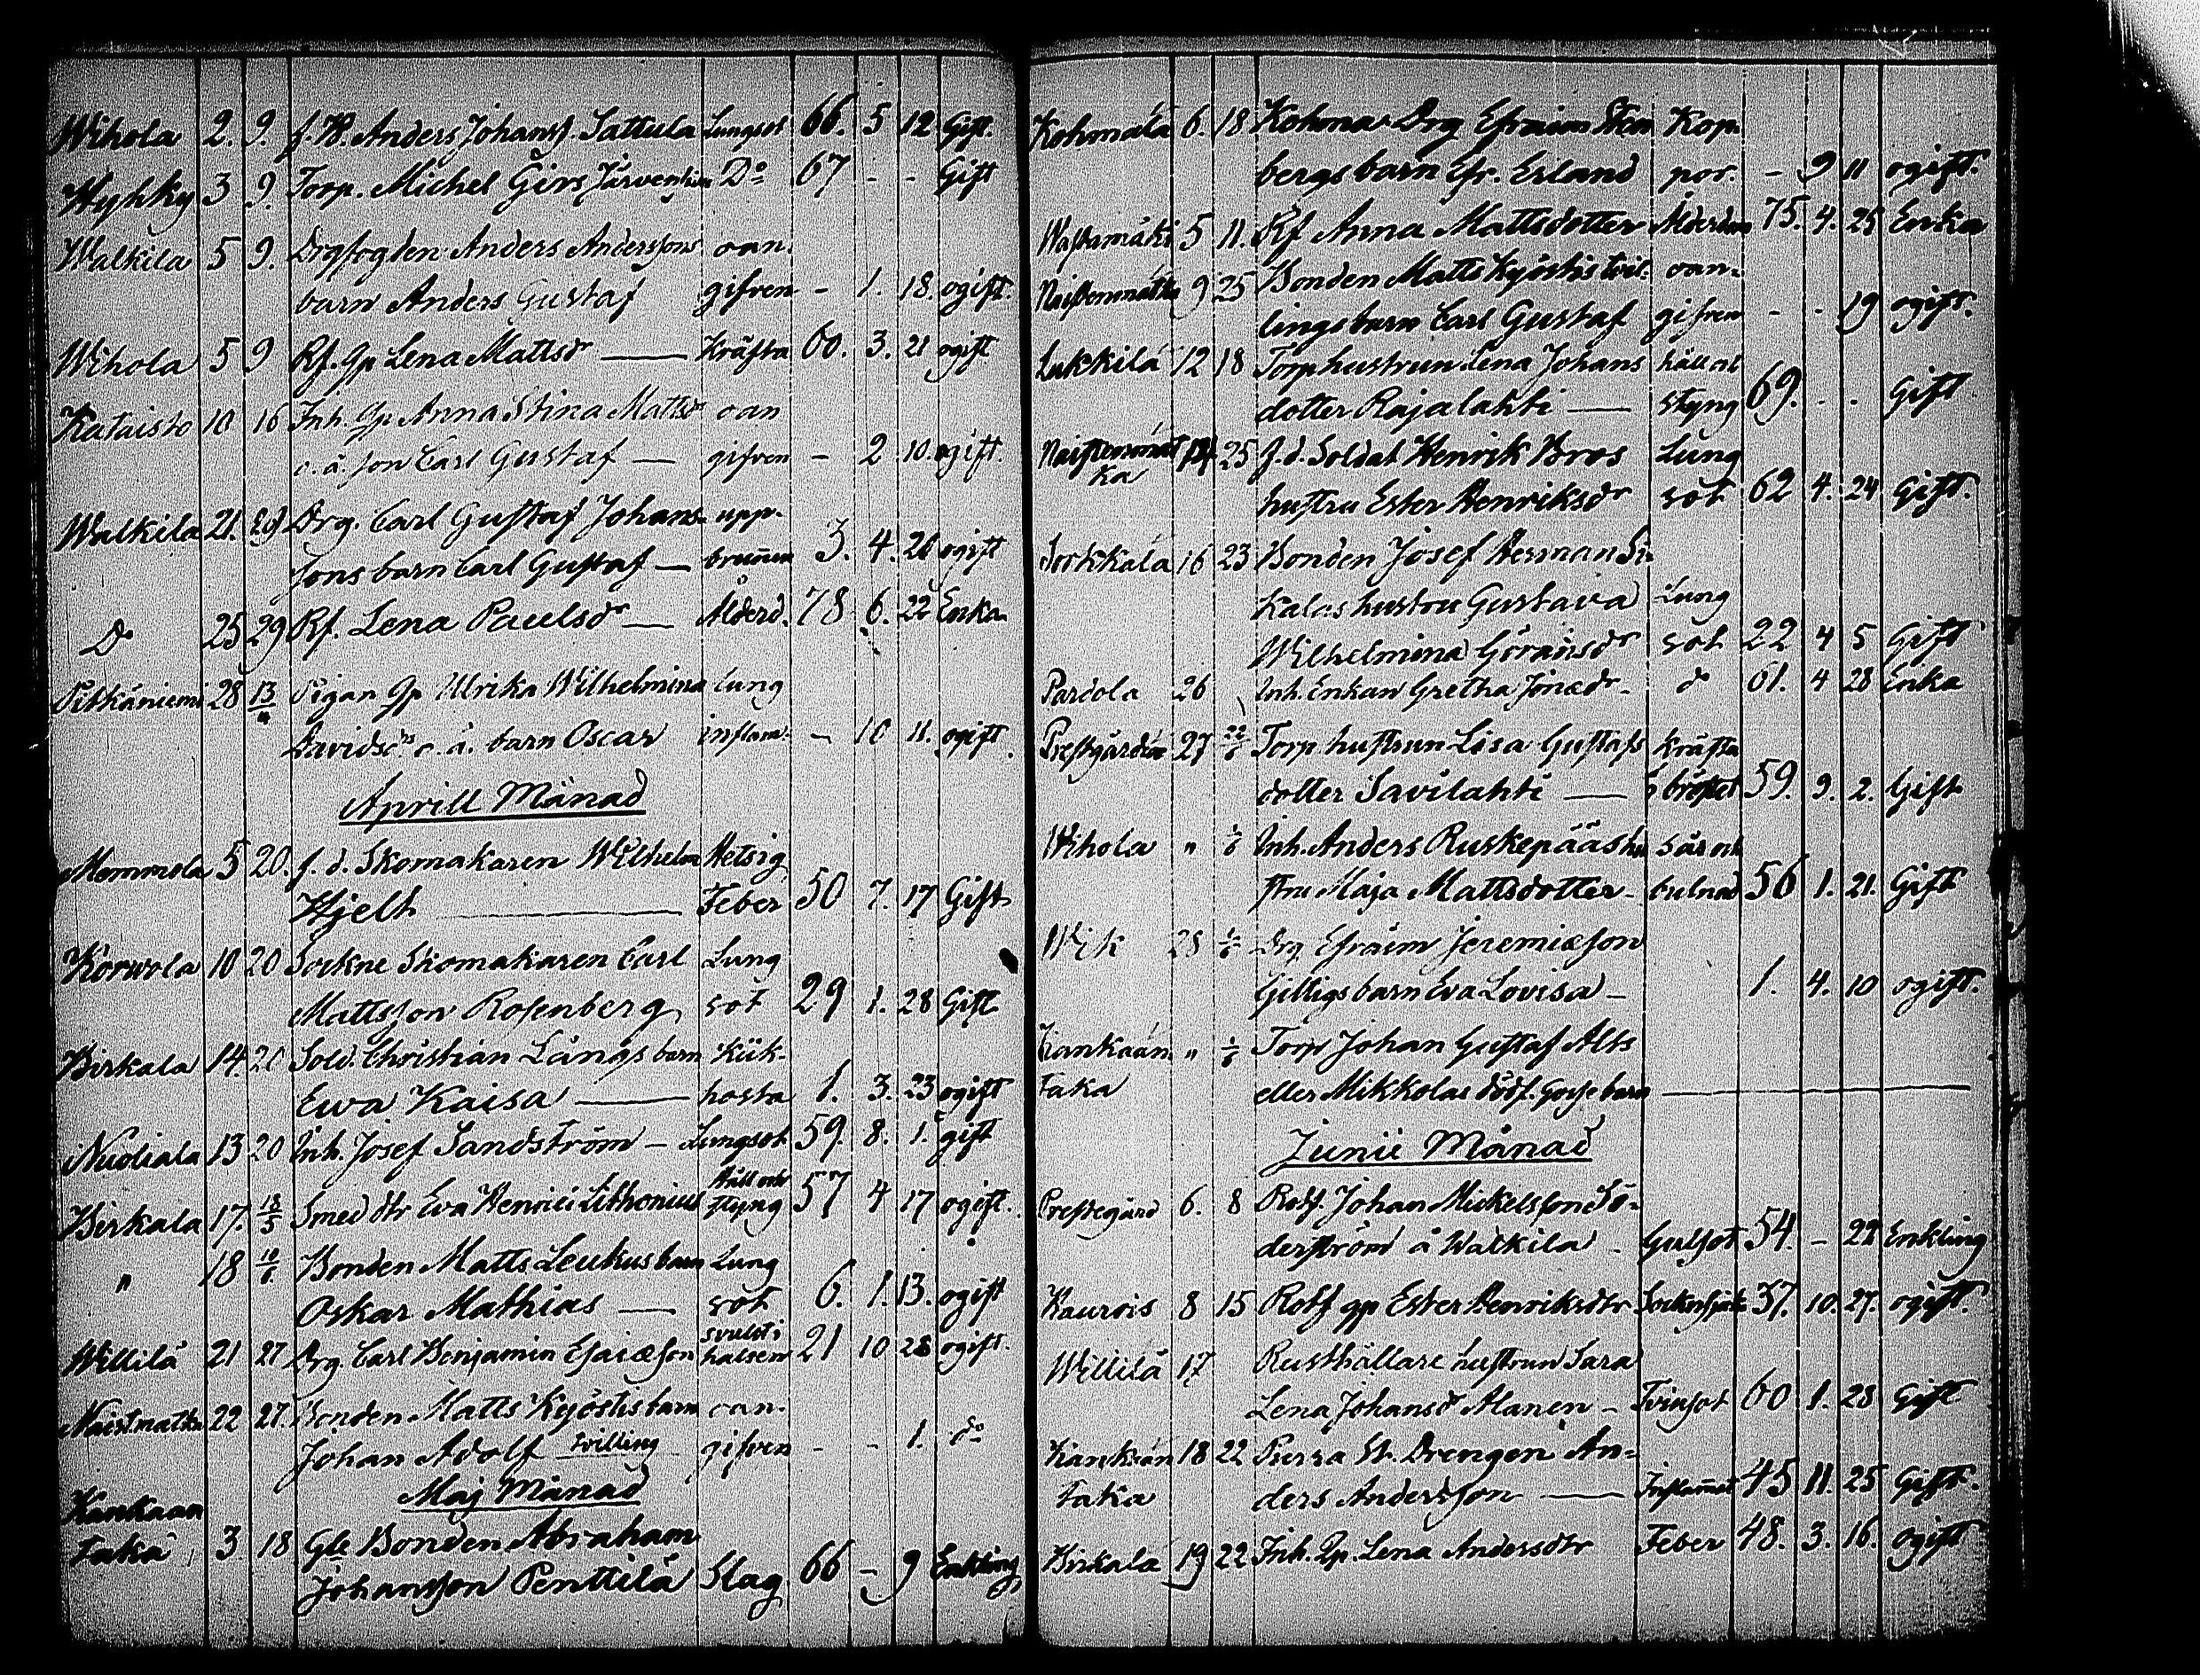 Wihola 2. 9. f. H. Anders Johanss. Sattula Lungsot 66. 5 12 Gift.
Hyhky 3 9. Torp. Michel Girs Järvensivu Do 67 - - Gift
Walkila 5 9. Drgfogden Anders Anderssons oan-
barn Anders Gustaf gifven - 1. 18. ogift.
Wihola 5 9 Rf. Qp Lena Mattsdr — Kräfta 60. 3. 21 ogift
Kataisto 10 16 Inh. Qp Anna Stina Mattsdr oan
o. ä. son Carl Gustaf — gifven - 2 10. ogift.
Walkila 21. 29 Drg. Carl Gustaf Johans- upp-
sons barn Carl Gustaf — brunnen 3. 4. 26 ogift
Do 25 29 Rf. Lena Paulsdr — Ålderd. 78 6. 22 Enka
Pitkäniemi 28 13/4 Pigan Qp Ulrika Wilhelmina lung
Davidsdrs o. ä. barn Oscar inflam. - 10 11. ogift
Aprill Månad
Memmola 5 20. f. d. Skomakaren Wilhelm Hetsig
Hjelt — Feber 50 7. 17 Gift
Korvola 10 20 Sockne Skomakaren Carl Lung
Mattsson Rosenberg sot 29 1. 28 Gift
Birkala 14. 20 Sold. Christian Långs barn Kik-
Ewa Kaisa — hosta 1. 3. 23 ogift
Nuoliala 13 20 Inh. Josef Sandström — Lungsot 59. 8. 1. gift
Birkala 17. 18/5 Smed dtr Eva Henrici Lithonius Håll och styng 57 4 17 ogift.
" 18 Bonden Matts Leukus barn Lung
Oskar Mathias — sot 6. 1. 13. ogift
Willilä 21 27 Drg. Carl Benjamin Esaiæson svulst i halsen 21 10 28 ogift.
Naistmatka 22 27. Bonden Matts Kyöstis barn oan-
Johan Adolf tvilling gifven - - 1. do
Maj Månad
Kankaan
Taka 3 18 Gle Bonden Abraham
Johansson Penttilä Slag 66 - 9 Enkling
Kohmala 6. 18 Kohmas Drg Efraim Sten Kop-
bergs barn Efr. Erland por. - 9 11 ogift.
5 11. Rf Anna Mattsdotter Ålderdom 75. 4. 25 Enka
Naistenmatka 9 25 Bonden Matts Kyöstis tvil- oan-
lingsbarn Carl Gustaf gifven - - 19 ogift.
Lukkila 12 18 Torp hustrun Lena Johans håll och
dotter Rajalahti — styng 69. - - Gift
Naistenmat 14 25 f. d. Soldat Henrik Bros Lung
ka hustru Ester Henriksdr sot 62 4. 24 Gift.
Sorkkala 16 23 Bonden Josef Herman
Kalas hustru Gustava Lung
Wilhelmina Göransdr sot 22 4 5 Gift
Partola 26 Inh. Enkan Gretha Jonædr - do 61. 4 28 Enka
Prestgården 27 Torp hustrun Lisa Gustafs Kräfta
dotter Savilahti — i bröstet 59. 9. 2. Gift
Wihola " 1/6 Inh. Anders Ruskepääs hu sår och
stru Maja Mattsdotter - bulnad 56 1. 21. Gift
Wik 28 1/6 Drg. Efraim Jeremiæson
Gilligs barn Eva Lovisa - 1. 4. 10 ogift.
Kankaan " 1/6 Torp Johan Gustaf Alts
Taka eller Mikkolas dödf. gosse barn —
Junii Månad
Prestegård 6. 8 Rotf. Johan Mickelsson Sö-
derström å Walkila - Gulsot 54. - 22 Enkling
Kaurois 8 15 Rotf qp Ester Henriksdtr 37. 10. 27. ogift.
Willilä 17 Rusthållare hustrun Sara
Lena Johansd Alanen - Tvinsot 60 1. 28 Gift
Kankaan 18 22 St. Drengen An-
Taka ders Andersson — Inflammat 45 11. 25 Gift.
Birkala 19 22 Inh. Qp. Lena Andersdtr Feber 48. 3. 16. ogift